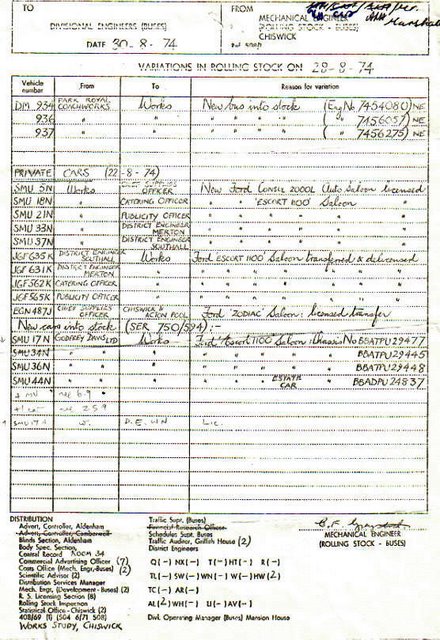 TO
FROM
DIVISIONAL ENGINEERS (BUSES)
MECHANICAL ENGINEER
(ROLLING STOCK - BUSES)
CHISWICK
DATE 30-8-74
VARIATIONS IN ROLLING STOCK ON 28-8-74
Vehicle number From To Reason for variation
DM 934 PARK ROYAL COACHWORKS Works New bus into stock (Eng No 7454080) NE
936 " " " " " " ( " 7456057) NE
937 " " " " " " ( " 7456275) NE
PRIVATE CARS (22-8-74)
SMU 5N Works CHIEF SUPPLIES OFFICER New Ford Consul 2000L Auto Saloon licensed
SMU 18N " CATERING OFFICER " " 'ESCORT 1100' Saloon "
SMU 21N " PUBLICITY OFFICER " " " " "
SMU 33N " DISTRICT ENGINEER MERTON " " " " "
SMU 37N " DISTRICT ENGINEER SOUTHALL " " " " "
JGF 635K DISTRICT ENGINEER SOUTHALL Works Ford ESCORT 1100 Saloon transferred & delicensed
JGF 631K DISTRICT ENGINEER MERTON " " " " " " "
JGF 562K CATERING OFFICER " " " " " " "
JGF 565K PUBLICITY OFFICER " " " " " " "
EGN 487J CHIEF SUPPLIES OFFICER CHISWICK & ACTON POOL Ford 'ZODIAC' Saloon: licensed transfer
New cars into stock (SER 750/594):-
SMU 17N GODFREY DAVIS LTD Works Ford 'Escort 1100' Saloon: Chassis No BBATPU29477
SMU 34N " " " " " " " BBATPU29445
SMU 36N " " " " " " " BBATPU29448
SMU 44N " " " " " ESTATE CAR " " BBADPU24837
D.E. WN Lic.
DISTRIBUTION
Advert. Controller, Aldenham
Advert. Controller, Camberwell
Blinds Section, Aldenham
Body Spec. Section,
Central Record ROOM 34
Commercial Advertising Officer (7)
Costs Office (Mech. Engr.-Buses) (2)
Scientific Advisor (2)
Distribution Services Manager
Mech. Engr. (Development - Buses) (2)
R. S. Licensing Section (8)
Rolling Stock Inspection
Statistical Office - Chiswick (2)
408/69 (1) (504 6/71 508)
WORKS STUDY, CHISWICK
Traffic Supt. (Buses)
Financial Research Officer
Schedules Supt. Buses
Traffic Auditor, Griffith House (2)
District Engineers
Q(-) NX(-) T(-) HT(-) R(-)
TL(-) SW(-) WN(-) W(-) HW(2)
TC(-) AR(-)
AL(2) WH(-) U(-) AV(-)
Divl. Operating Manager (Buses) Mansion House
MECHANICAL ENGINEER
(ROLLING STOCK - BUSES)